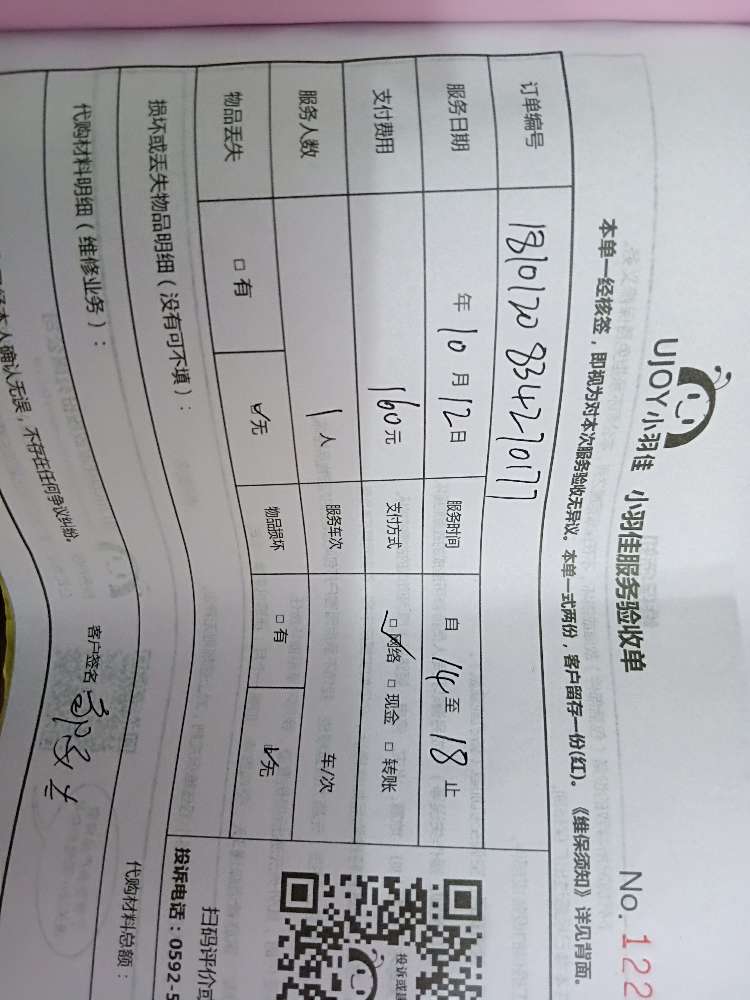 UJOY小羽佳 小羽佳服务验收单
No.122
本单一经核签，即视为对本次服务验收无异议。本单一式两份，客户留存一份(红)。《维保须知》详见背面。
订单编号 1810120 834270177
服务日期 年 10 月 12 日 服务时间 自 14 至 18 止
支付费用 160元 支付方式 ☑网络 □现金 □转账
服务人数 1人 服务车次 车/次
物品丢失 □有 ☑无 物品损坏 □有 ☑无
损坏或丢失物品明细（没有可不填）：
代购材料明细（维修业务）：
代购材料总额：
本人确认无误，不存在任何争议纠纷。
客户签名
投诉或建
扫码评价可
投诉电话：0592-5